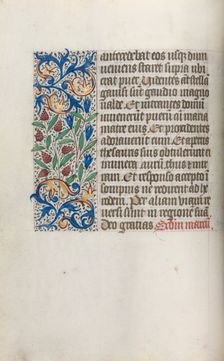 antecedebat eos usq; dum
veniens staret supra ubi e
rat puer. Videntes aut stellā
gauisi sunt gaudio magno
ualde. Et intrantes domū
inuenerūt puerū cū maria
matre eius. Et procidentes
adorauerūt eum. Et apertis
thesauris suis obtulerunt ei
munera. aurū. thus. et mirrā.
Et responso accepto
sompnis ne redirent ad he
rodem. Per aliam viā re
uersi sunt in regionē suā
Deo gratias